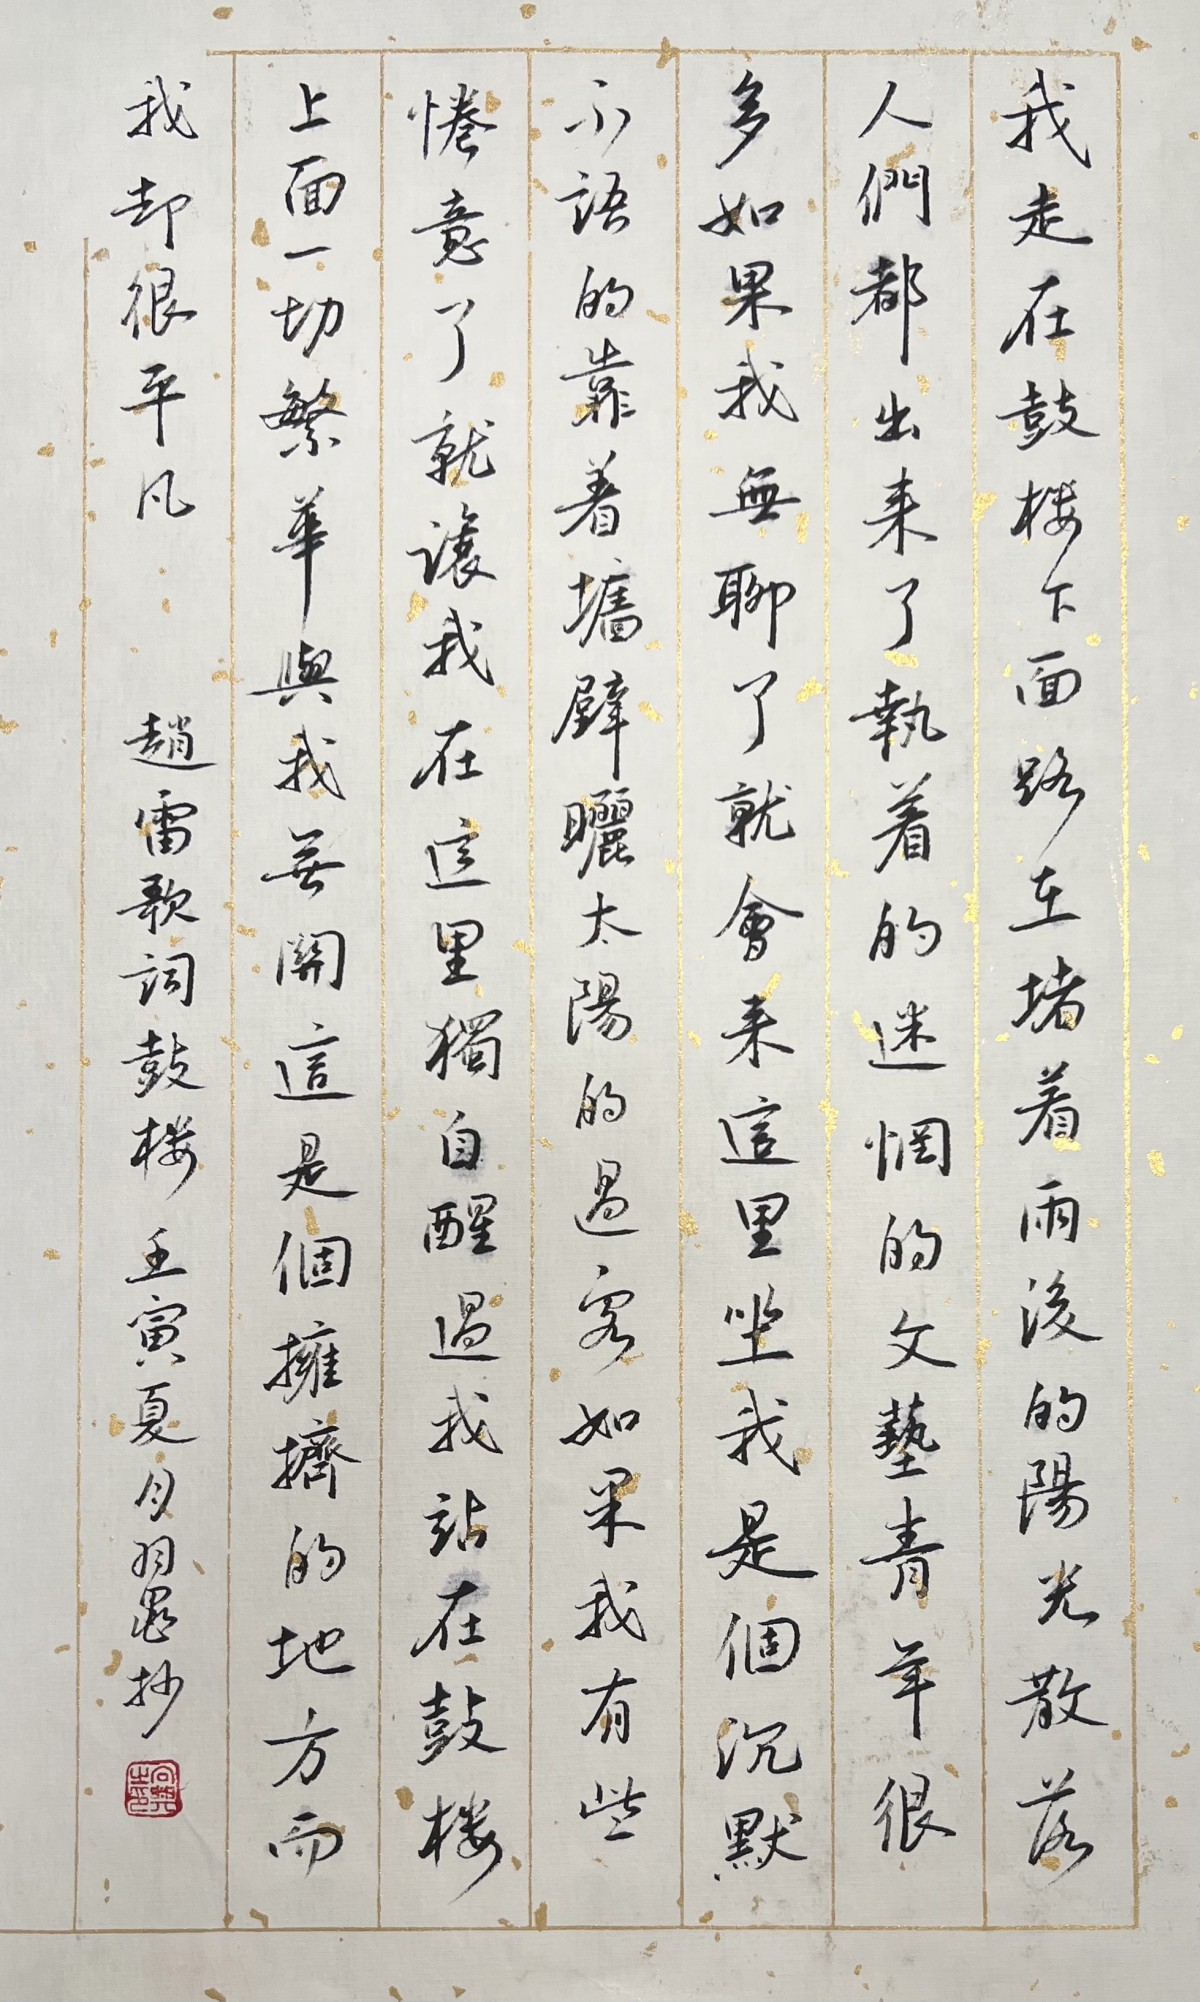 我走在鼓楼下面路在堵着雨後的陽光散落
人們都出来了執着的迷惘的文藝青年很
多如果我無聊了就會来這里坐我是個沉默
不語的靠着墻壁曬太陽的過客如果我有些
惓意了就讓我在這里獨自醒過我站在鼓楼
上面一切繁華與我無關這是個擁擠的地方而
我却很平凡 趙雷歌詞鼓楼 壬寅夏月羽墨抄